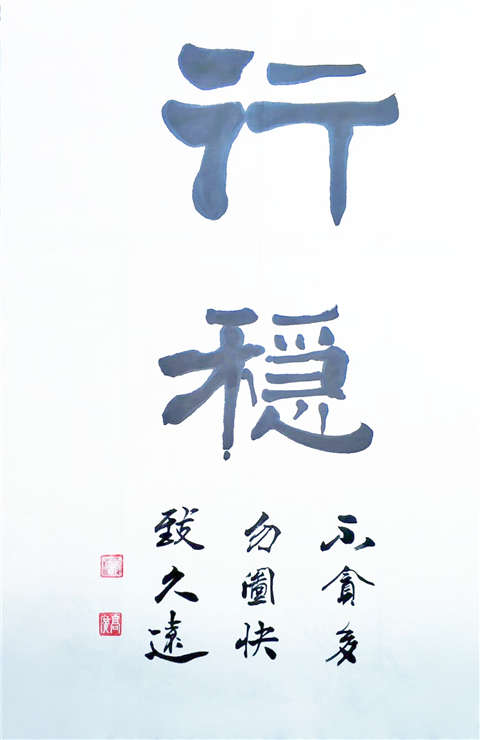 行穩
不貪多
勿圖快
致久遠